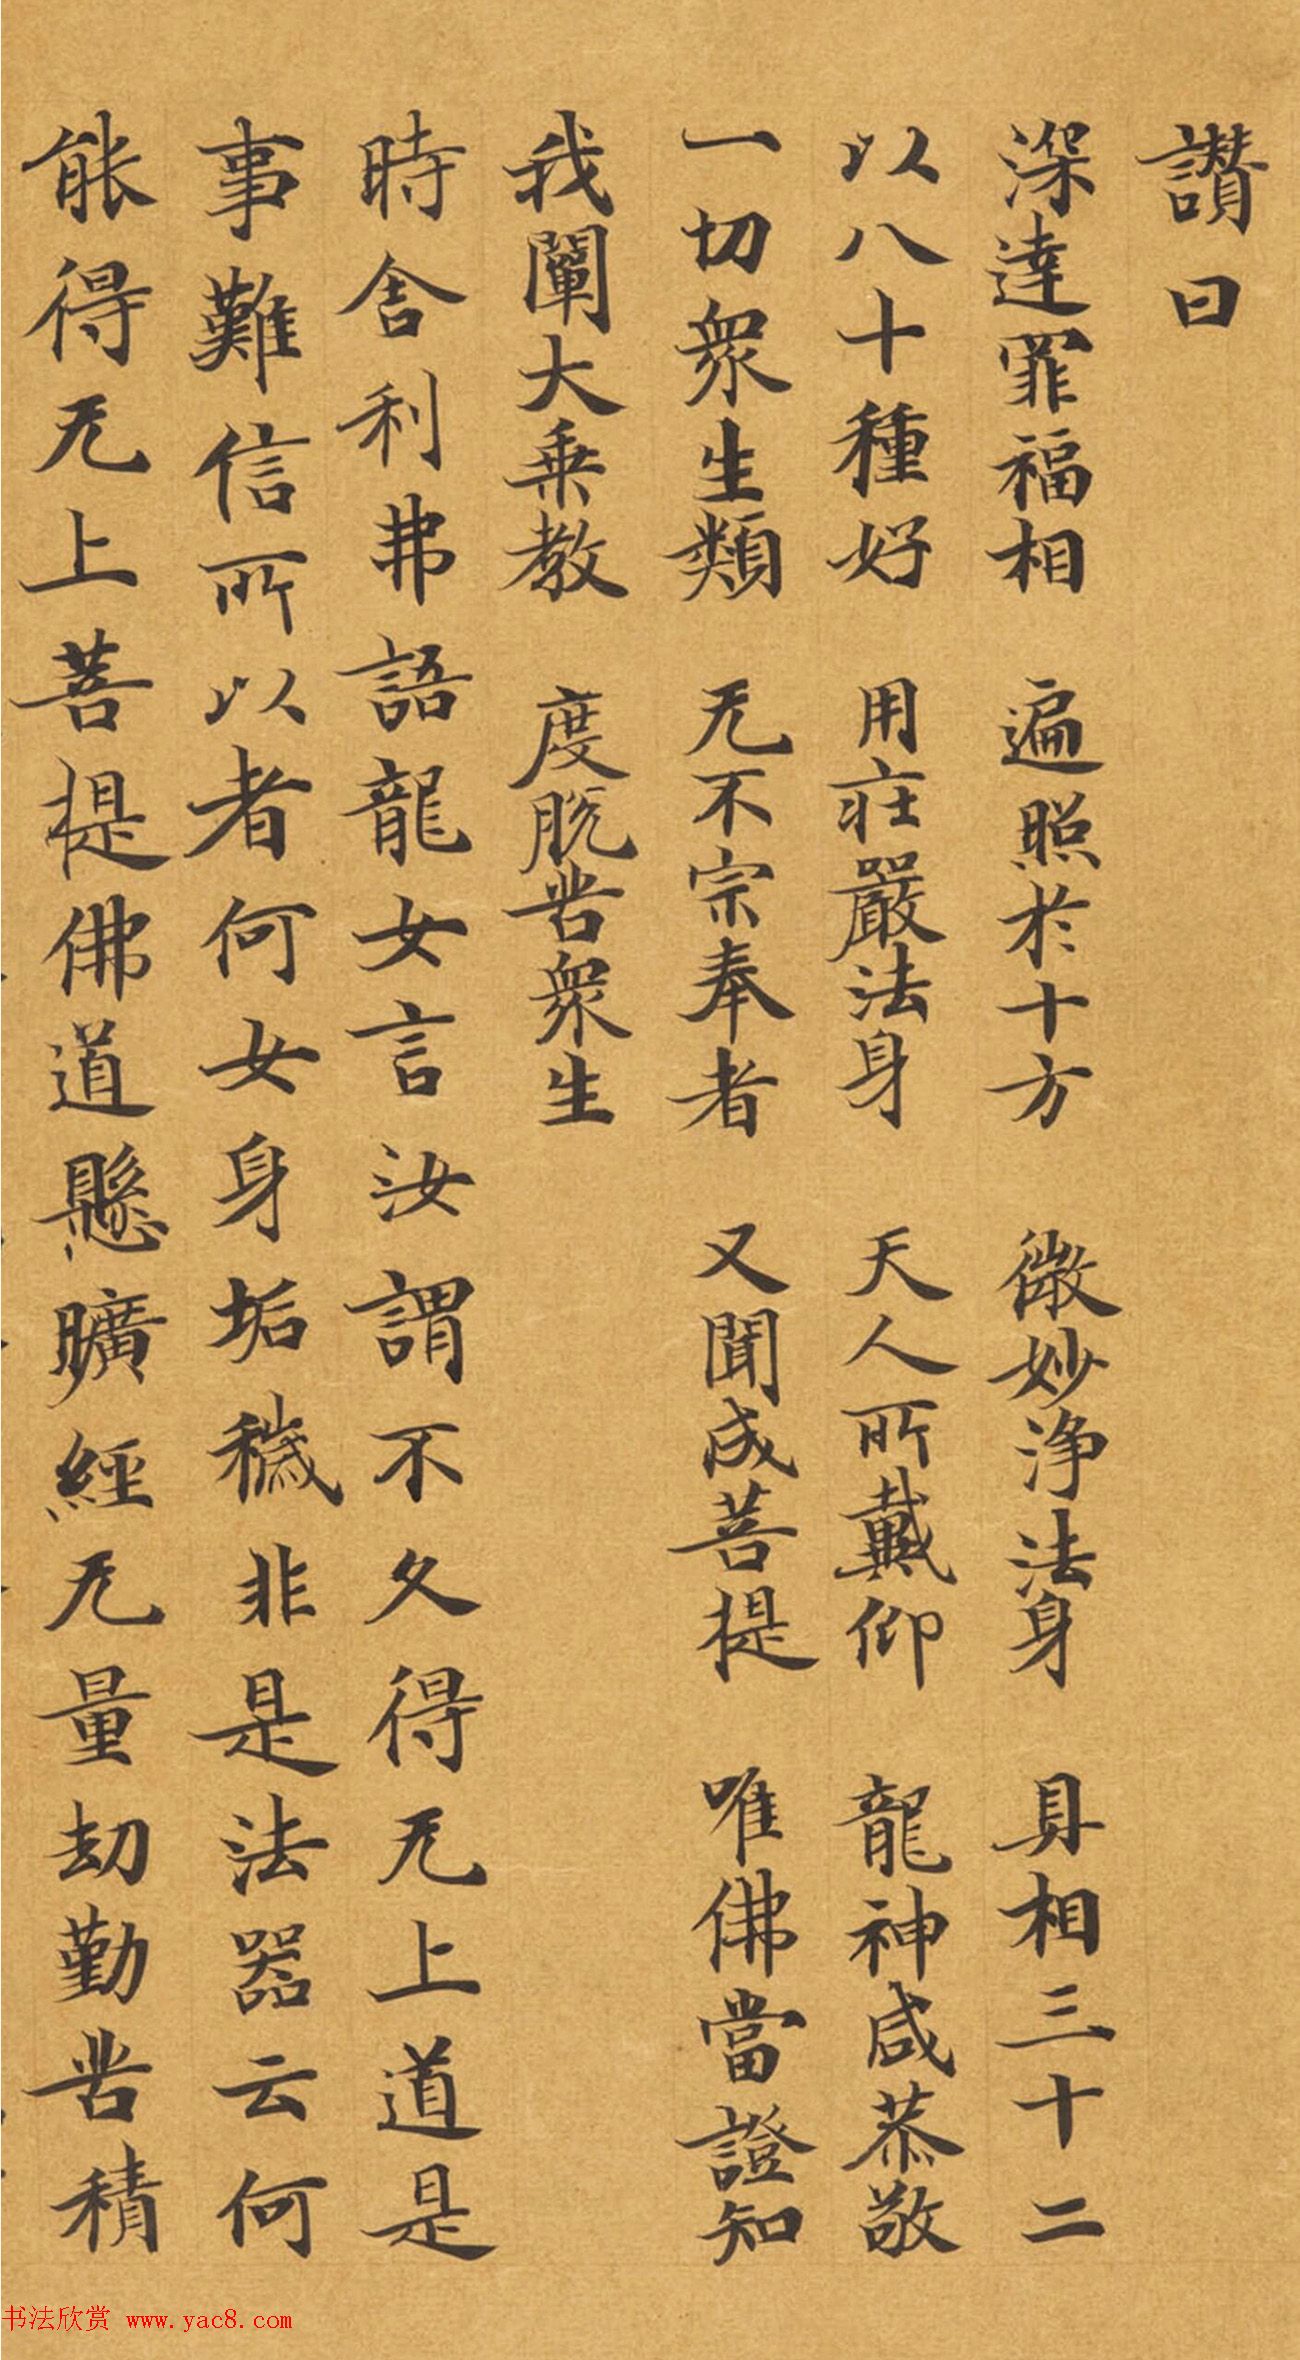 讚曰
深達罪福相 遍照於十方 微妙淨法身 具相三十二
以八十種好 用莊嚴法身 天人所戴仰 龍神咸恭敬
一切衆生類 无不宗奉者 又聞成菩提 唯佛當證知
我闡大乗教 度脫苦衆生
時舍利弗語龍女言汝謂不久得无上道是
事難信所以者何女身垢穢非是法器云何
能得无上菩提佛道懸曠經无量劫勤苦積
书法欣赏 www.yac8.com